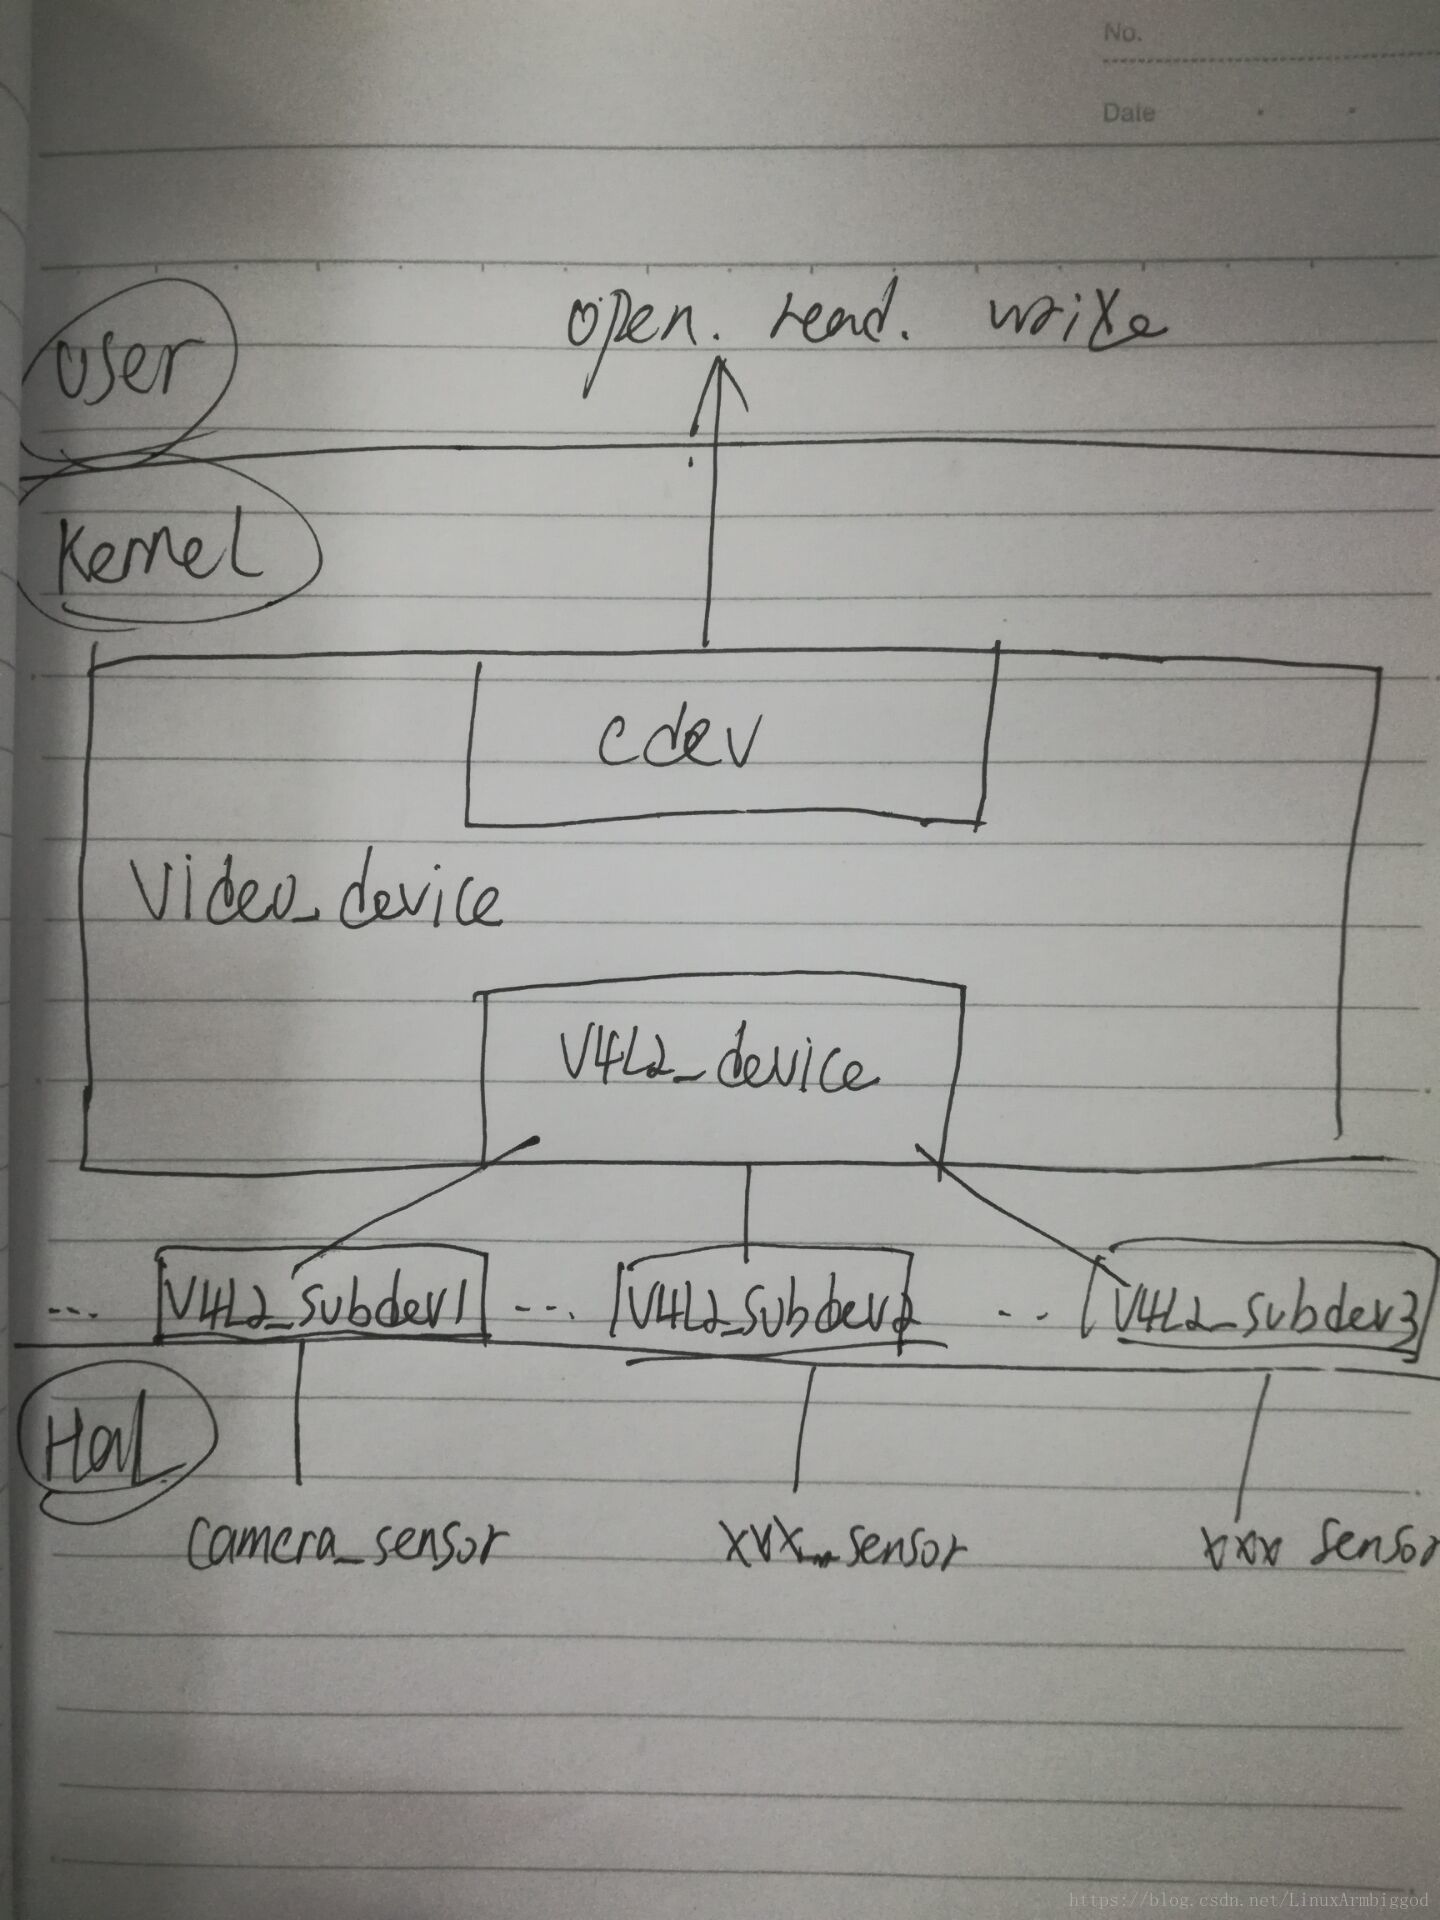 No.
Date
open. read. write
user
Kernel
cdev
Video_device
V4L2_device
... V4L2_subdev1 ... V4L2_subdev2 ... V4L2_subdev3
HaL
camera_sensor xxx_sensor xxx sensor
https://blog.csdn.net/LinuxArmbiggod